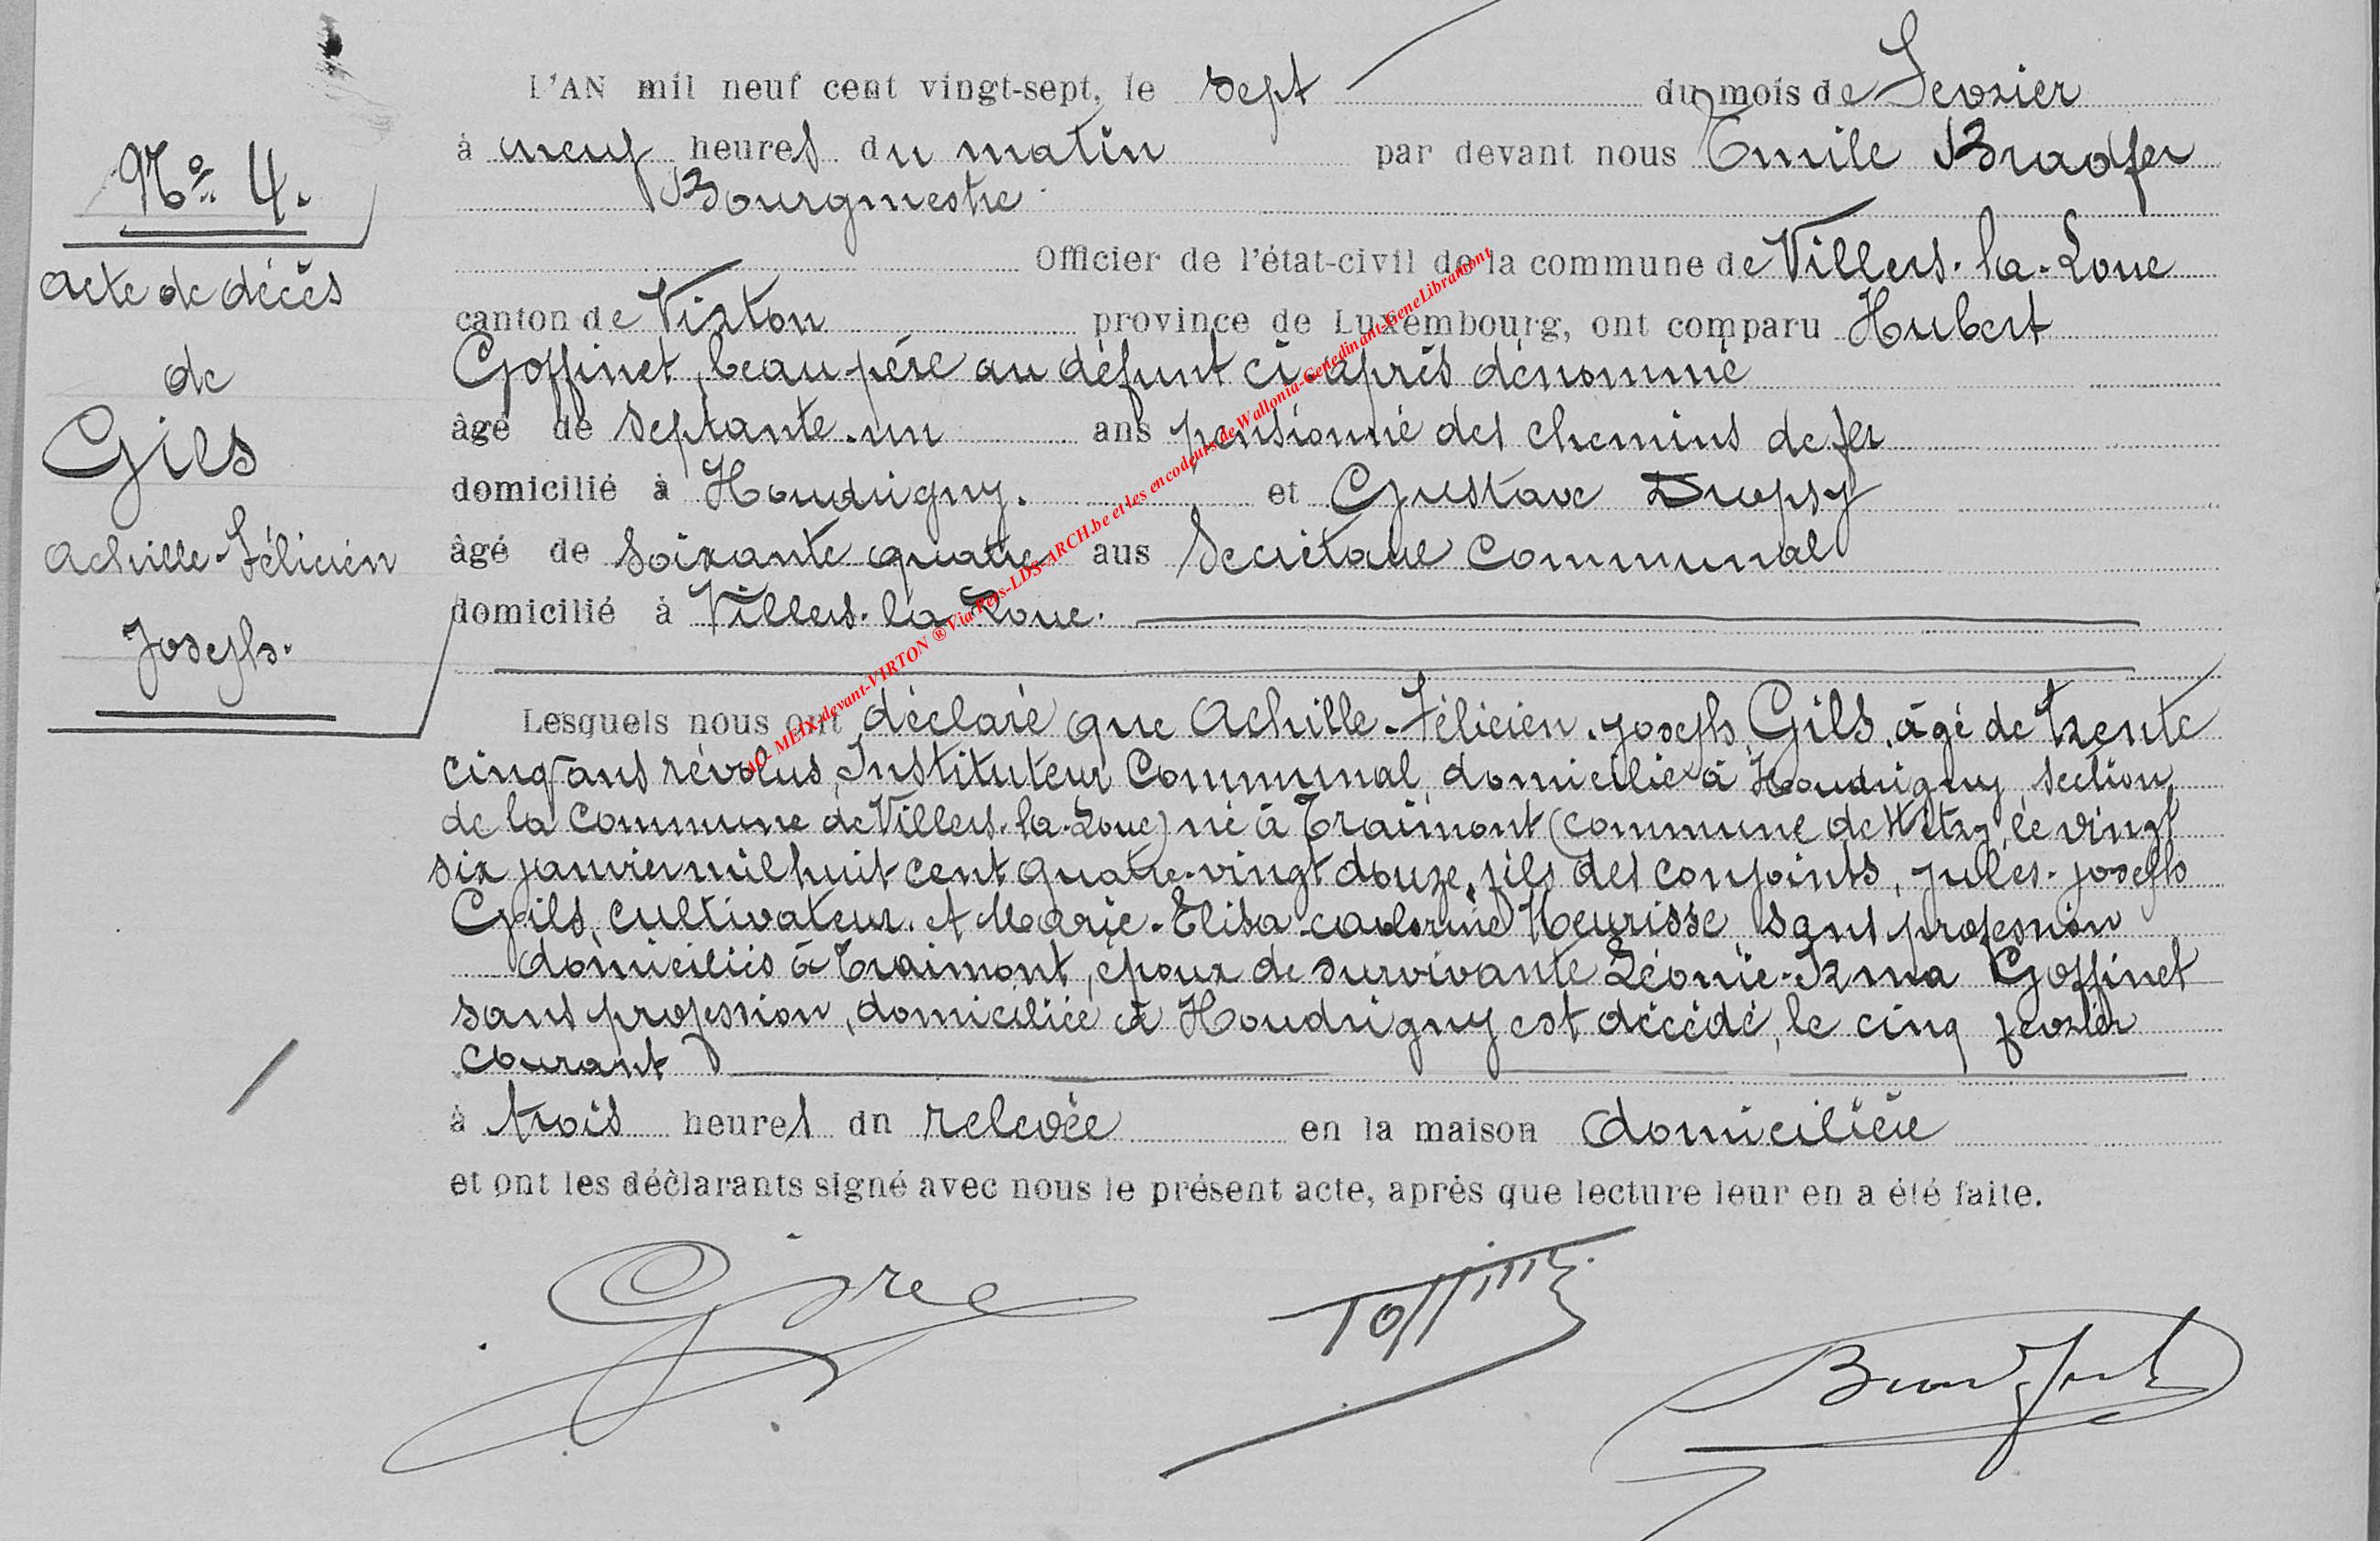 N° 4.
Acte de décès
de
Gils
Achille-Félicien
Joseph.
L'AN mil neuf cent vingt-sept, le sept du mois de Fevrier
à neuf heures du matin par devant nous Emile Bradfer
Bourgmestre
Officier de l'état-civil de la commune de Villers-la-Loue
canton de Virton province de Luxembourg, ont comparu Hubert
Goffinet, beau-père au défunt ci-après dénommé
âgé de septante-un ans pensionné des chemins de fer
domicilié à Houdrigny. et Gustave Dropsy
âgé de soixante quatre ans Secrétaire communal
domicilié à Villers-la-Loue.
Lesquels nous ont déclaré que Achille-Félicien-Joseph Gils, âgé de trente
cinq ans révolus, Instituteur Communal, domicilié à Houdrigny, section
de la commune de Villers-la-Loue) né à Traimont (commune de Witry, le vingt
six janvier mil huit cent quatre-vingt douze, fils des conjoints, Jules-Joseph
Gils, cultivateur et Marie-Elisa Heurisse sans profession
domiciliés à Traimont, époux de survivante Léonie-Irma Goffinet
sans profession, domiciliée à Houdrigny est décédé, le cinq fevrier
courant
à trois heures dn relevée en la maison domicilière
et ont les déclarants signé avec nous le présent acte, après que lecture leur en a été faite.
Bradfer
AD- MEIX-devant-VIRTON ® Via Pers-LDS-ARCH.be et les encodeurs de Wallonia-Genedinant-GeneLibramont